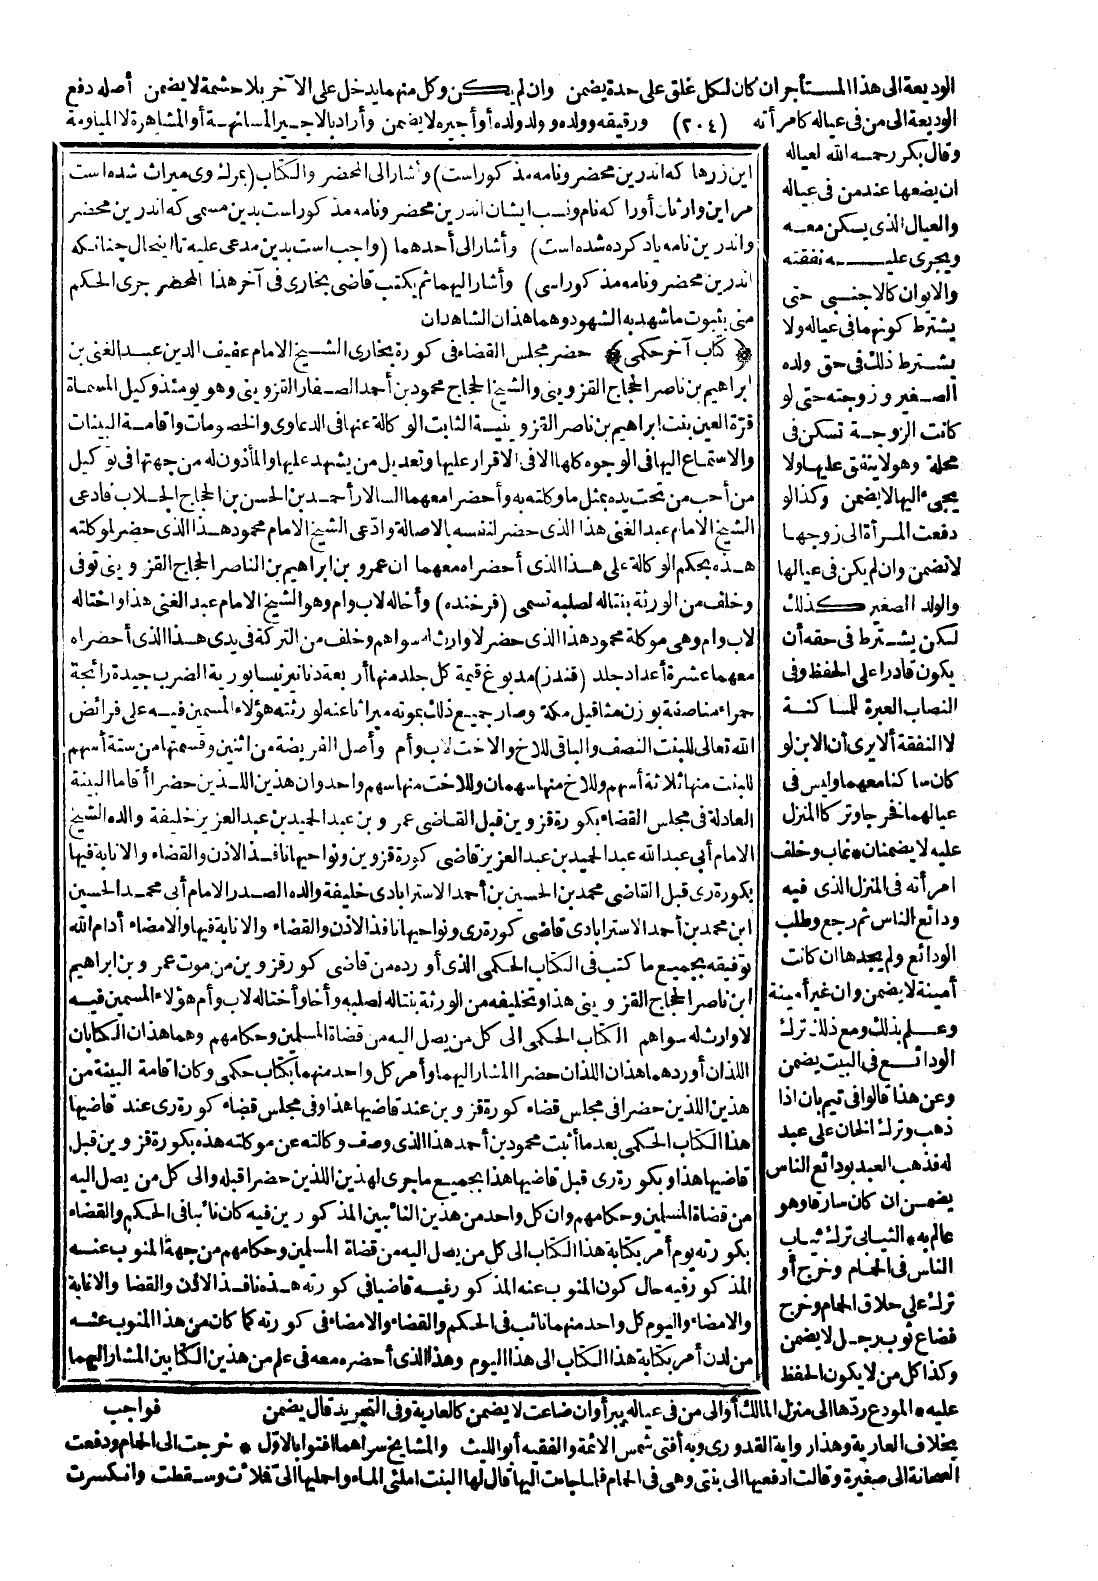 الوديعة الى هذا المستأجر ان كان لكل غلق على حدة يضمن وان لم يكن وكل منهما يدخل على الآخر بلا حشمة لا يضمن أصله دفع
الوديعة الى من فى عياله كامرأته (٢٠٤) ورقيقه وولده وولد ولده أو أجيره لا يضمن وأراد بالاجير المسانهة أو المشاهرة لا المياومة
وقال بكر رحمه الله لعياله
ان يضعها عند من فى عياله
والعيال الذى يسكن معه
ويجرى عليه نفقته
والابوان كالاجنبى حتى
يشترط كونهما فى عياله ولا
يشترط ذلك فى حق ولده
الصغير و زوجته حتى لو
كانت الزوجة تسكن فى
محلة وهو لا ينفق عليها ولا
يجىء اليها لا يضمن وكذا لو
دفعت المرأة الى زوجها
لا تضمن وان لم يكن فى عيالها
والولد الصغير كذلك
لكن يشترط فى حقه أن
يكون قادرا على الحفظ وفى
النصاب العبرة للمساكنة
لا النفقة ألا يرى أن الابن لو
كان ساكنا معهما وليس فى
عيالهما فخرجا وتركا المنزل
عليه لا يضمنان * غاب وخلف
امرأته فى المنزل الذى فيه
ودائع الناس ثم رجع وطلب
الودائع ولم يجدها ان كانت
أمينة لا يضمن وان غير أمينة
وعلم بذلك ومع ذلك ترك
الودائع فى البيت يضمن
وعن هذا قالوا فى تيم بان اذا
ذهب وترك الخان على عبد
له فذهب العبد بودائع الناس
يضمن ان كان سارقا وهو
عالم به * الثيابى ترك ثياب
الناس فى الحمام وخرج أو
ترك على حلاق الحمام وخرج
فضاع ثوب رجل لا يضمن
وكذا كل من لا يكون الحفظ
اين زرها كه اندرين محضر ونامه مذكور است) وأشار الى المحضر والكتاب (بمرك وى ميراث شده است
مر اين وارثان أورا كه نام ونسب ايشان اندرين محضر ونامه مذكور است بدين مسمى كه اندرين محضر
واندرين نامه ياد كرده شده است) وأشار الى أحدهما (واجب است بدين مدعى عليه تا اينحال چنانكه
اندرين محضر ونامه مذكور است) وأشار اليهما ثم يكتب قاضى بخارى فى آخر هذا المحضر جرى الحكم
منى بثبوت ما شهد به الشهود وهما هذان الشاهدان
﴿ كتاب آخر حكمى ﴾ حضر مجلس القضاء فى كورة بخارى الشيخ الامام عفيف الدين عبد الغنى بن
ابراهيم بن ناصر الحجاج القزوينى والشيخ الحجاج محمود بن أحمد الصفار القزوينى وهو يومئذ وكيل المسماة
قرة العين بنت ابراهيم بن ناصر القزوينية الثابت الوكالة عنها فى الدعاوى والخصومات واقامة البينات
والاستماع اليها فى الوجوه كلها الا فى الاقرار عليها وتعديل من يشهد عليها والمأذون له من جهتها فى توكيل
من أحب من تحت يده بمثل ما وكلته به وأحضرا معهما السالار أحمد بن الحسن بن الحجاج الجلاب فادعى
الشيخ الامام عبد الغنى هذا الذى حضر لنفسه بالاصالة وادعى الشيخ الامام محمود هذا الذى حضر لموكلته
هذه بحكم الوكالة على هذا الذى أحضراه معهما ان عمرو بن ابراهيم بن الناصر الحجاج القزوينى توفى
وخلف من الورثة بنتا له لصلبه تسمى (فرخنده) وأخا له لاب وام وهو الشيخ الامام عبد الغنى هذا واختا له
لاب وام وهى موكلة محمود هذا الذى حضر لا وارث له سواهم وخلف من التركة فى يدى هذا الذى أحضراه
معهما عشرة أعداد جلد (قندز) مدبوغ قيمة كل جلد منها أربعة دنانير نيسابورية الضرب جيدة رائجة
حمراء مناصفة بوزن مثاقيل مكة وصار جميع ذلك بموته ميراثا عنه لورثته هؤلاء المسمين فيه على فرائض
الله تعالى للبنت النصف والباقى للاخ والاخت لاب وأم وأصل الفريضة من اثنين وقسمتها من ستة أسهم
للبنت منها ثلاثة أسهم وللاخ منها سهمان وللاخت منها سهم واحد وان هذين اللذين حضرا أقاما البينة
العادلة فى مجلس القضاء بكورة قزوين قبل القاضى عمرو بن عبد الحميد بن عبد العزيز خليفة والده الشيخ
الامام أبى عبد الله عبد الحميد بن عبد العزيز قاضى كورة قزوين ونواحيها نافذ الاذن والقضاء والانابة فيها
بكورة رى قبل القاضى محمد بن الحسين بن أحمد الاسترابادى خليفة والده الصدر الامام أبى محمد الحسين
ابن محمد بن أحمد الاسترابادى قاضى كورة رى ونواحيها نافذ الاذن والقضاء والانابة فيها والامضاء أدام الله
توفيقه بجميع ما كتب فى الكتاب الحكمى الذى أورده من قاضى كور قزوين من موت عمرو بن ابراهيم
ابن ناصر الحجاج القزوينى هذا وتخليفه من الورثة بنتا له لصلبه وأخا وأختا له لاب وأم هؤلاء المسمين فيه
لا وارث له سواهم الكتاب الحكمى الى كل من يصل اليه من قضاة المسلمين وحكامهم وهما هذان الكتابان
اللذان أوردهما هذان اللذان حضرا المشار اليهما وأمر كل واحد منهما بكتاب حكمى وكان اقامة البينة من
هذين اللذين حضرا فى مجلس قضاء كورة قزوين عند قاضيها هذا وفى مجلس قضاء كورة رى عند قاضيها
هذا الكتاب الحكمى بعد ما أثبت محمود بن أحمد هذا الذى وصف وكالته عن موكلته هذه بكورة قزوين قبل
قاضيها هذا وبكورة رى قبل قاضيها هذا بجميع ما جرى لهذين اللذين حضرا قبله والى كل من يصل اليه
من قضاة المسلمين وحكامهم وان كل واحد من هذين النائبين المذكورين فيه كان نائبا فى الحكم والقضاء
بكورته يوم أمر بكتابة هذا الكتاب الى كل من يصل اليه من قضاة المسلمين وحكامهم من جهة المنوب عنه
المذكور فيه حال كون المنوب عنه المذكور فيه قاضيا فى كورته هذه نافذ الاذن والقضا والانابة
والامضاء واليوم كل واحد منهما نائب فى الحكم والقضاء والامضاء فى كورته كما كان من هذا المنوب عنه
من لدن أمر بكتابة هذا الكتاب الى هذا اليوم وهذا الذى أحضره معه فى علم من هذين الكتابين المشار اليهما
فواجب
عليه * المودع ردّها الى منزل المالك أو الى من فى عياله يبرأ وان ضاعت لا يضمن كالعارية وفى التجريد قال يضمن
بخلاف العارية وهذا رواية القدورى وبه أفتى شمس الائمة والفقيه أبو الليث والمشايخ سراهما افتوا بالاوّل * خرجت الى الحمام ودفعت
الى صغيرة وقالت ادفعيها الى بنتى وهى فى الحمام فلما جاءت اليها قال لها البنت املئى الماء واحمليها الىّ فملأت وسقطت وانكسرت